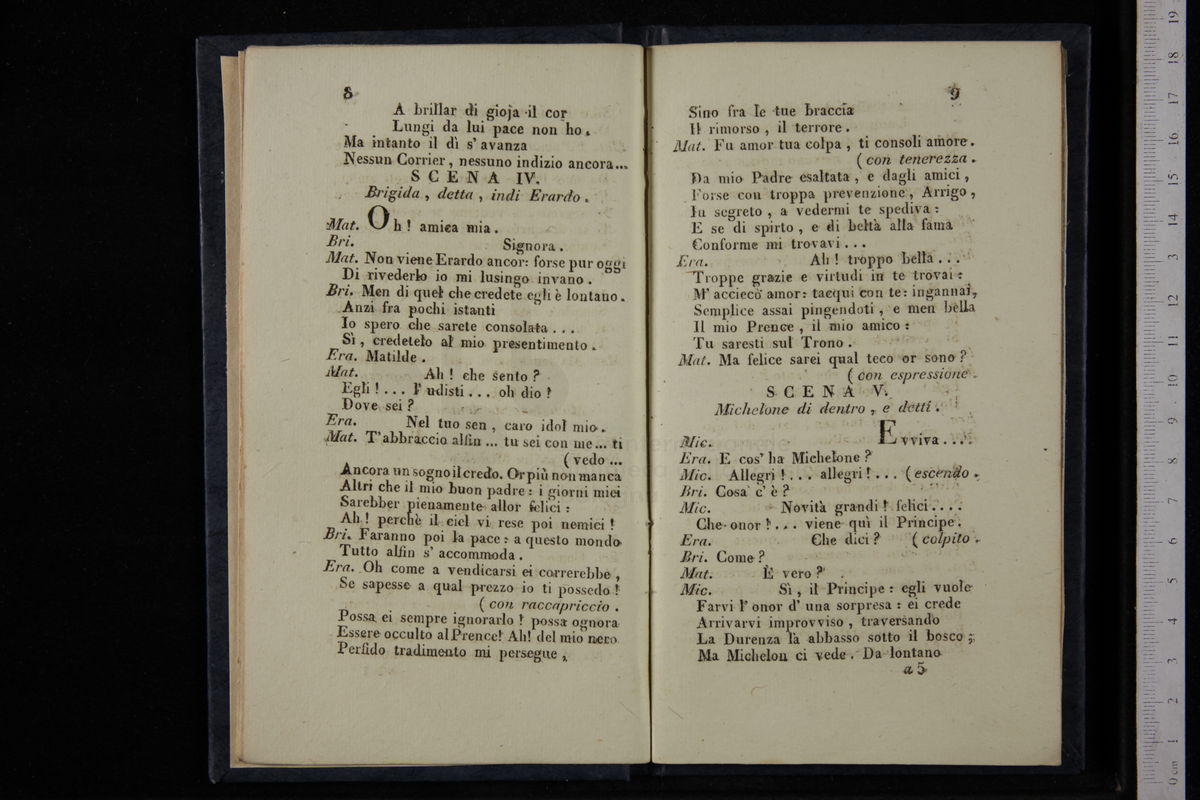 8
A brillar di gioja il cor
Lungi da lui pace non ho.
Ma intanto il dì s' avanza
Nessun Corrier, nessuno indizio ancora...
SCENA IV.
Brigida, detta, indi Erardo.
Mat. Oh! amica mia.
Bri. Signora.
Mat. Non viene Erardo ancor: forse pur oggi
Di rivederlo io mi lusingo invano.
Bri. Men di quel che credete egli è lontano.
Anzi fra pochi istanti
Io spero che sarete consolata...
Sì, credetelo al mio presentimento.
Era. Matilde.
Mat. Ah! che sento?
Egli!... l' udisti... oh dio!
Dove sei?
Era. Nel tuo sen, caro idol mio.
Mat. T'abbraccio alfin... tu sei con me... ti
(vedo...
Ancora un sogno il credo. Or più non manca
Altri che il mio buon padre: i giorni miei
Sarebber pienamente allor felici:
Ah! perchè il ciel vi rese poi nemici!
Bri. Faranno poi la pace: a questo mondo
Tutto alfin s' accommoda.
Era. Oh come a vendicarsi ei correrebbe,
Se sapesse a qual prezzo io ti possedo!
(con raccapriccio.
Possa ei sempre ignorarlo! possa ognora
Essere occulto al Prence! Ah! del mio nero
Perfido tradimento mi persegue,
9
Sino fra le tue braccia
Il rimorso, il terrore.
Mat. Fu amor tua colpa, ti consoli amore.
(con tenerezza.
Da mio Padre esaltata, e dagli amici,
Forse con troppa prevenzione, Arrigo,
In segreto, a vedermi te spediva:
E se di spirto, e di beltà alla fama
Conforme mi trovavi...
Era. Ah! troppo bella...
Troppe grazie e virtudi in te trovai:
M' acciecò amor: tacqui con te: ingannai,
Semplice assai pingendoti, e men bella
Il mio Prence, il mio amico:
Tu saresti sul Trono.
Mat. Ma felice sarei qual teco or sono?
(con espressione.
SCENA V.
Michelone di dentro, e detti.
Mic. Evviva....
Era. E cos' ha Michelone?
Mic. Allegri!... allegri!... (escendo.
Bri. Cosa c' è?
Mic. Novità grandi! felici....
Che onor!... viene quì il Principe.
Era. Che dici? (colpito.
Bri. Come?
Mat. È vero?
Mic. Sì, il Principe: egli vuole
Farvi l' onor d' una sorpresa: ei crede
Arrivarvi improvviso, traversando
La Durenza là abbasso sotto il bosco;
Ma Michelon ci vede. Da lontano
a 5
0 cm 1 2 3 4 5 6 7 8 9 10 11 12 13 14 15 16 17 18 19